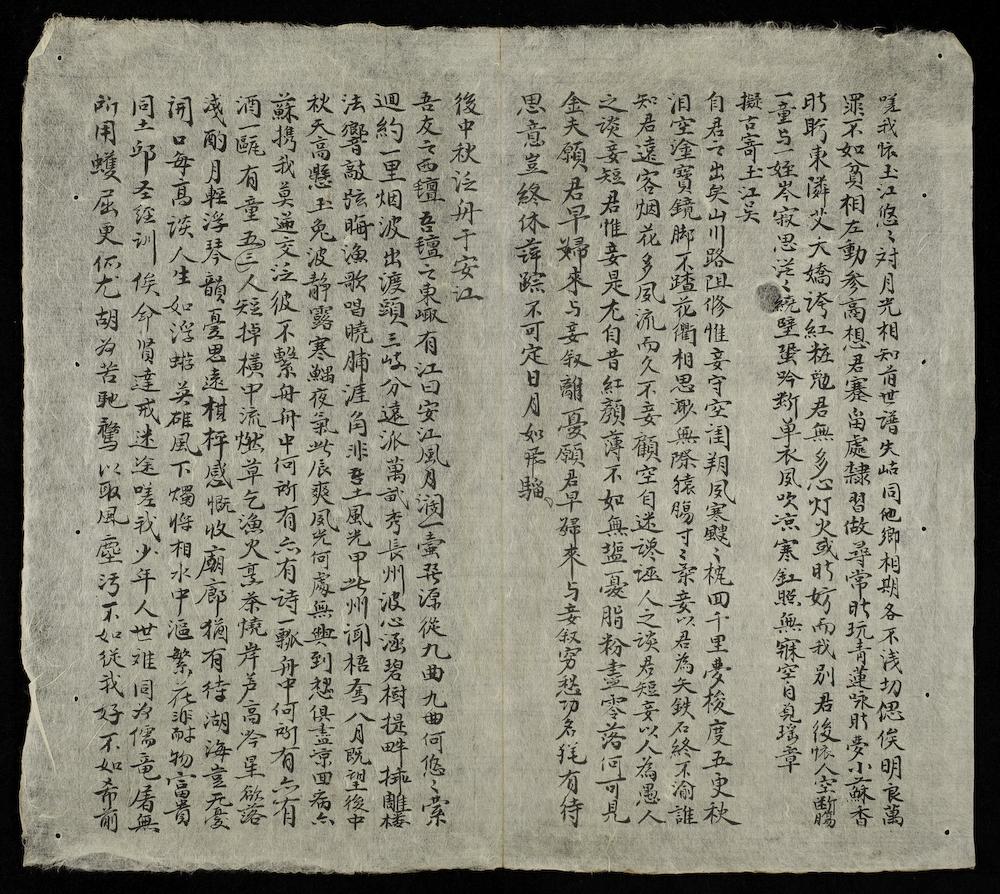 嗟我懷玉江悠〻対月光相知前世譜失岵同他鄉相期各不浅切偲俟明良萬
罪不如貧相左動参高想君蹇畄處隸習做尋常时玩青蓮詠时夢小蘇香
时盻東隣艾大嬌誇紅粧勉君無多心灯火或时妨而我別君後懷人空断腸
一童与姪岑寂思茫〻繞壁蛩吟断单衣夙吹凉寒釭照無寐空自覓瑶章
擬古寄玉江吴
自君之出矣山川路阻修惟妾守空闺朔夙寒颼〻枕四千里夢梭度五更秋
泪空塗寶鏡脚不踏花衢相思淚無際猿腸寸〻柔妾以君為矢鉄石終不渝誰
知君遠客烟花多夙流而久不妾顧空自迷誤誣人之談君短妾以人為愚人
之談妾短君惟妾是尤自昔紅顏薄不如無塩憂脂粉盡零落何可見
金夫願君早歸来与妾叙離憂願君早歸来与妾叙穷愁功名毪有待
思意豈終休萍踪不可定日月如飛騮
後中秋泛舟于安江
吾友之西疆吾疆之東陬有江曰安江風月润一壷發源從九曲九曲何悠〻縈
迴約一里烟波出渡頭三岐分遠派萬武秀長州波心涵碧樹提畔排雕楼
法響敲弦晦漁歌唱曉脯涯角非吾土風光甲此州闻梧奮八月既望後中
秋天高懸玉兔波静露寒鰡夜氣此辰爽夙光何處無興到愁俱盡京囬病亦
蘇携我莫逆交泛彼不繫舟舟中何所有亦有诗一瓢舟中何所有亦有
酒一甌有童五三人短掉横中流燃草乞漁火烹茶燒岸芦高岑星欲落
浅酌月輕浮琴韻憂思遠棋枰感慨收廟廊猶有待湖海豈无憂
開口每高談人生如浮蝣英雄風下燭悴相水中漚繁花非耐物富貴
同土邱圣经訓俟命賢達戒迷途嗟我少年人世难同为儒竜屠無
所用蠖屈更伬尤胡为苦馳騖以取風塵污不如従我好不如希前